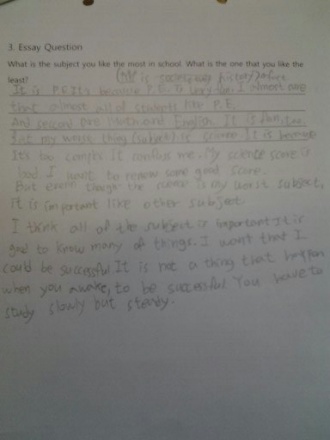 3. Essay Question
What is the subject you like the most in school. What is the one that you like the
least?
is
It is P.E. It's because P.E. is very fun. I
that almost all of students like P.E.
And second one Math and English. It is fun, too.
my worst thing (subject) is science. It is
It's too complex. It confuse me. My science score is
bad. I want to renew some good score.
But even though the science is my worst subject,
it is important like other subject.
I think all of the subject is important. It is
good to know many of things. I want that I
could be successful. It is not a thing that happen
when you awake, to be successful. You have to
study slowly but steady.